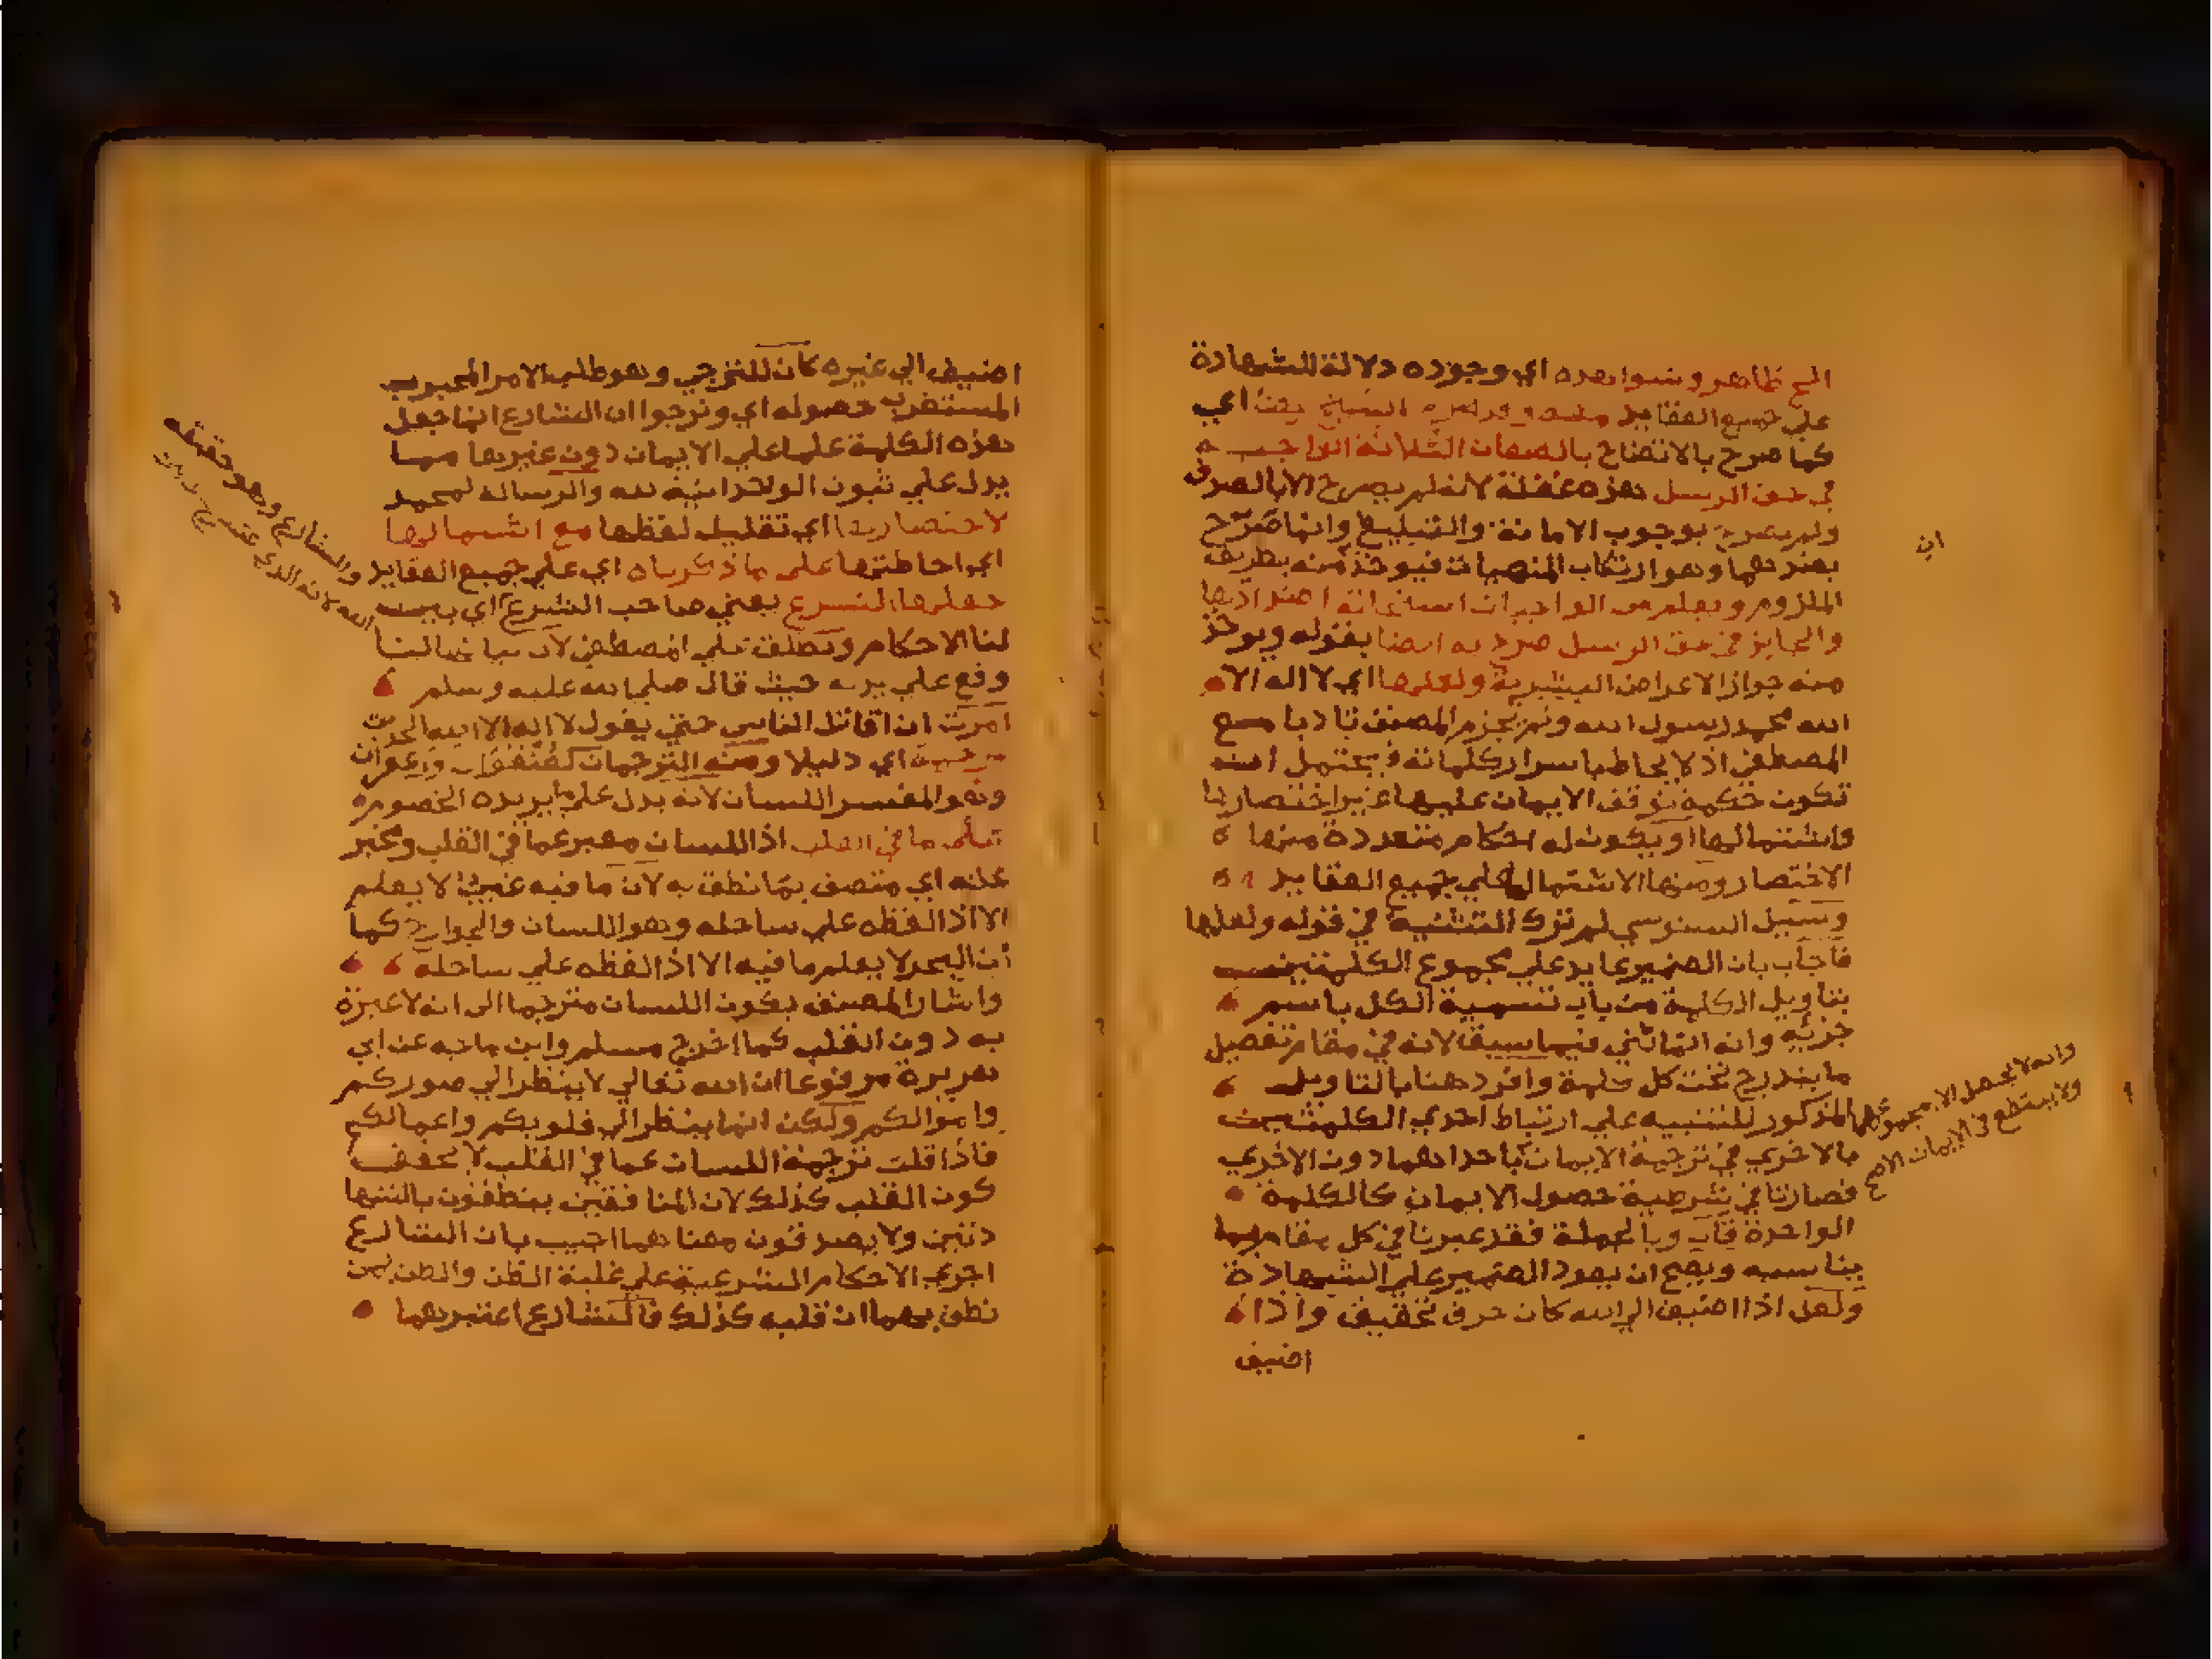 الخ ظاهر وشواهده اي وجوده دلالة الشهادة
علي جميع العقايد اي
كما صرح بالاتضاح بالصفات الثلاثة الواجبة
في حق الرسل هذه غفلة لانه لم يصرح الا بالصدق
ولم يصرح بوجوب الامانة والتبليغ وانما صرح
بضدهما وهو ارتكاب المنهيات فيوخذ منه بطريق
الملزوم ويعلم من الواجبات استحالة اضدادها
والجايز في حق الرسل صرح به ايضا بقوله ويوخذ
منه جواز الاعراض البشرية ولعلها اي لا اله الا
الله محمد رسول الله ولم يجزم المصنف تادبا مع
المصطفي اذ لا يحاط باسرار كلماته فيحتمل انه
تكون حكمة توقف الايمان عليها غير اختصارها
واشتمالها او يكون له احكام متعددة منها
الاختصار ومنها الاشتمال علي جميع العقايد
وسيل السنوسي لم ترك التثنية في قوله ولعلها
فاجاب بان الضمير عايد علي مجموع الكلمتين
بتاويل الكلمة من باب تسمية الكل باسم
جزئه وانه انما ثني فيما سبق لانه في مقام تفصيل
ما يندرج تحت كل كلمة وافرد هنا بالتاويل
المذكور للتنبيه علي ارتباط احدي الكلمتين
بالاخري في ترجمة الايمان باحداهما دون الاخري
فصارتا في شرطية حصول الايمان كالكلمة
الواحدة قاب وبالجملة فقد عبرنا في كل مقام بما
يناسبه ويصح ان يعود الضمير علي الشهادة
ولعل اذا اضيف الي الله كان حرف تحقيق واذا
اضيف
ان
وانه لا يحصل الا بمجموعهما
اضيف الي غيره كان للترجي وهو طلب الامر المحبوب
المستقرب حصوله اي ونرجوا ان الشارع انما جعل
هذه الكلمة علما علي الايمان دون غيرها مما
يدل علي ثبوت الوحدانية لله والرسالة لمحمد
لاختصارها اي تقليل لفظها مع اشتمالها
اي احاطتها علي ما ذكرناه اي علي جميع العقايد
جعلها الشرع يعني صاحب الشرع اي يبين
لنا الاحكام وتطلق علي المصطفي لان
وقع علي يده حيث قال صلي الله عليه وسلم
امرت ان اقاتل الناس حتي يقول لا اله الا الله الحديث
اي دليلا ومنه الترجمان كعنفوان وزعفران
وهو المفسر اللسان لانه يدل علي ما يريده الخصوم
علي ما في القلب اذ اللسان معبر عما في القلب ومخبر
عنه اي متصف بما نطق به لان ما فيه غيب لا يعلم
الا اذا لفظه علي ساحله وهو اللسان والجوارح كما
ان البحر لا يعلم ما فيه الا اذا لفظه علي ساحله
واشار المصنف بكون اللسان مترجما الي انه لا عبرة
به دون القلب كما اخرج مسلم وابن ماجه عن ابي
هريرة مرفوعا ان الله تعالي لا ينظر الي صوركم
واموالكم ولكن انما ينظر الي قلوبكم واعمالكم
فاذا قلت ترجمة اللسان عما في القلب لا تحقق
كون القلب كذلك لان المنافقين ينطقون بالشها
دتين ولا يصدقون معناهما اجيب بان الشارع
اجري الاحكام الشرعية علي غلبة الظن والظن بمن
نطق بهما ان قلبه كذلك فالشارع اعتبرهما
والشارع وهو حقيقة
الله لانه الذي شرع